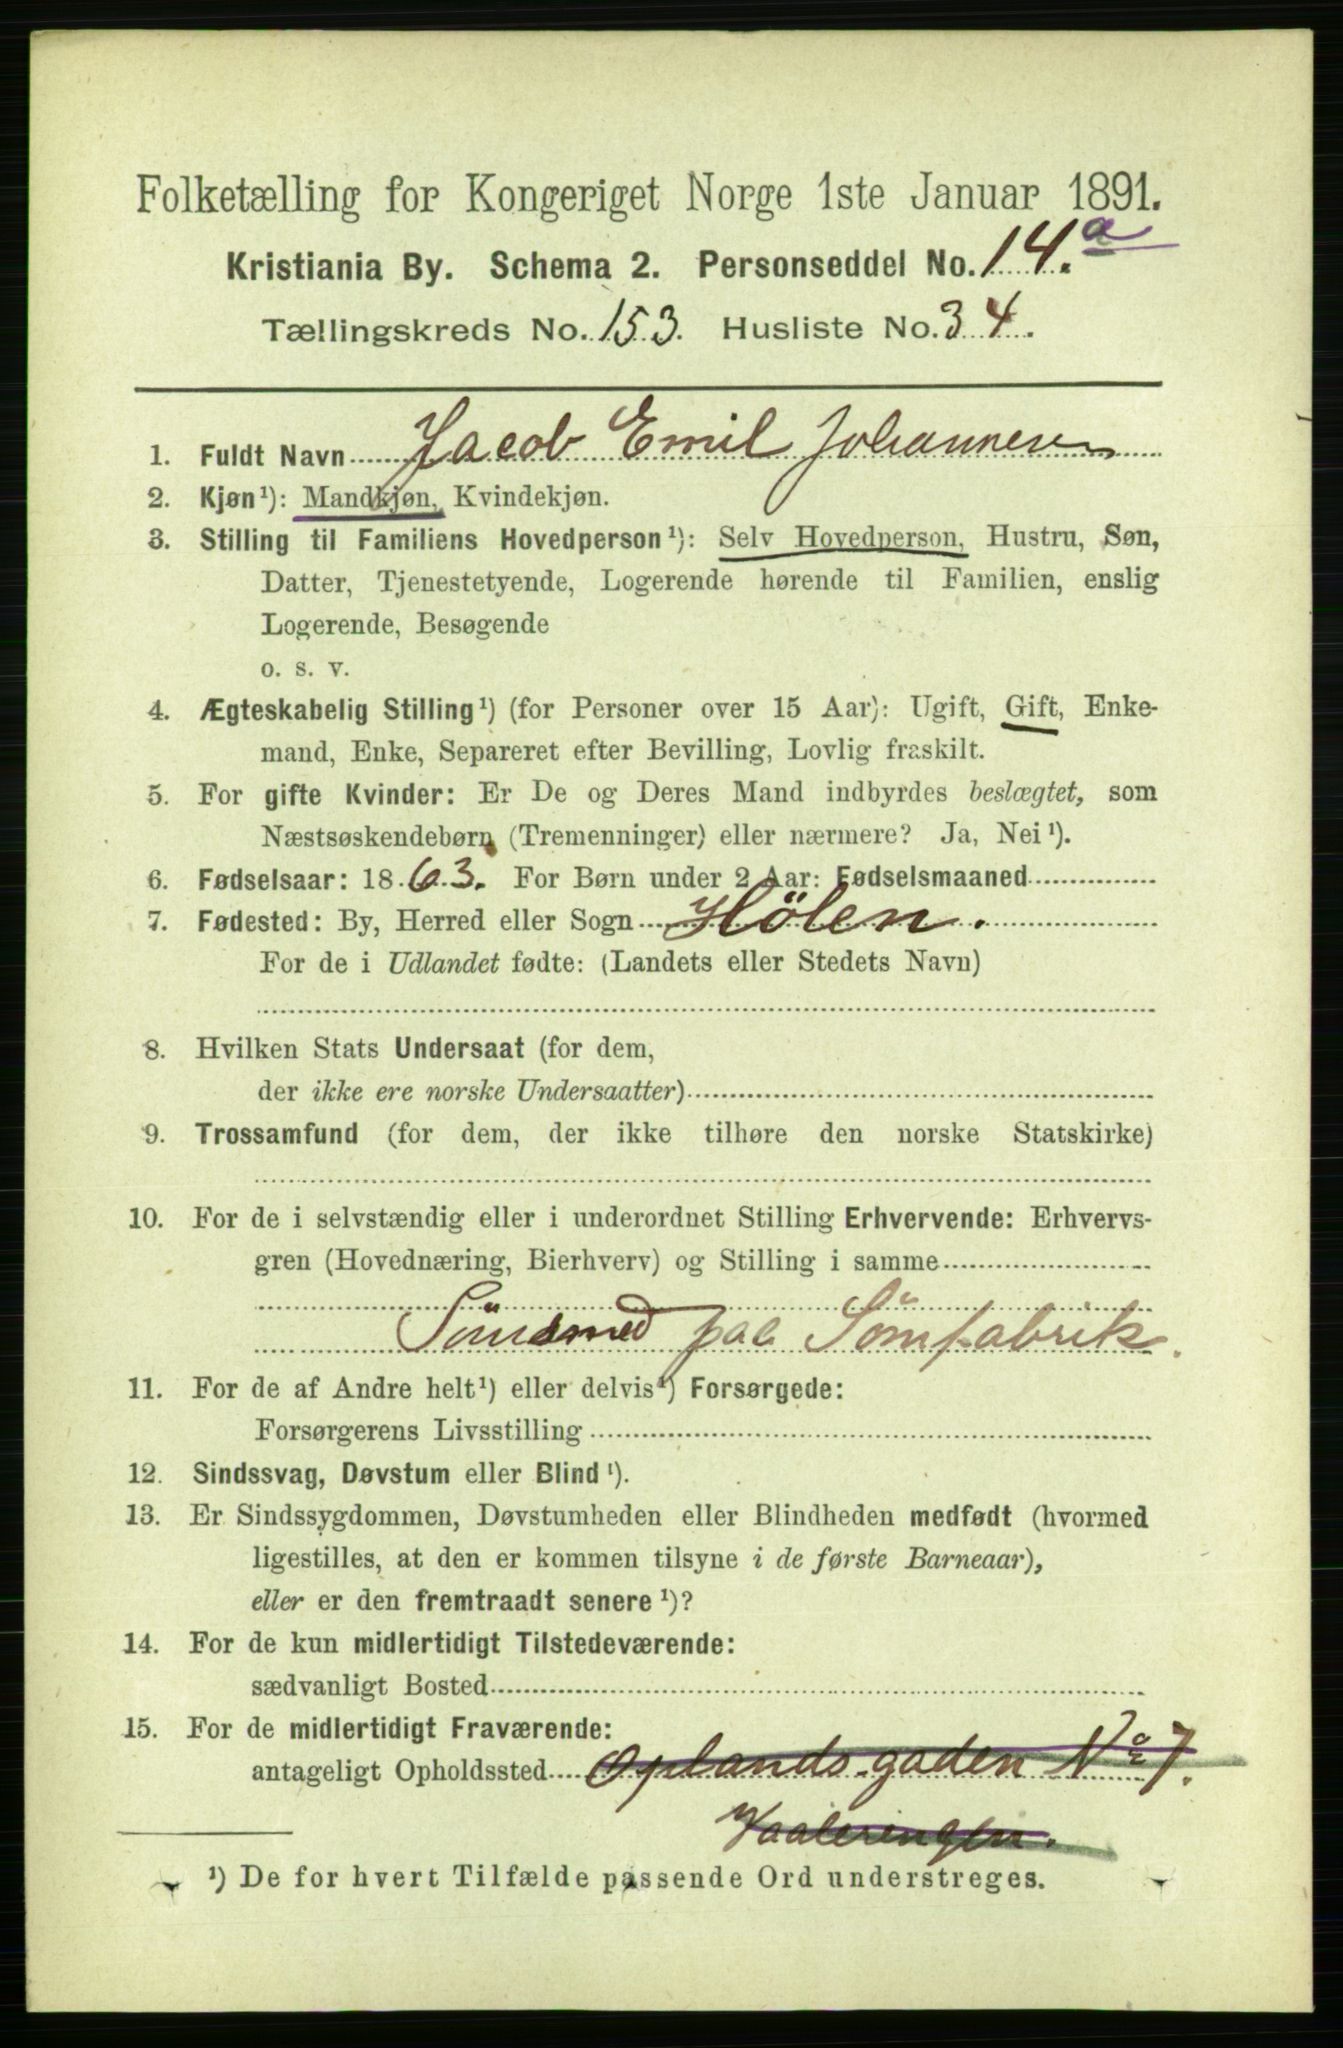 Folketælling for Kongeriget Norge 1ste Januar 1891.
Kristiania By. Schema 2. Personseddel No. 14.a
Tællingskreds No. 153. Husliste No. 34.
1. Fuldt Navn Jacob Emil Johannesen
2. Kjøn¹): Mandkjøn, Kvindekjøn.
3. Stilling til Familiens Hovedperson¹): Selv Hovedperson, Hustru, Søn,
Datter, Tjenestetyende, Logerende hørende til Familien, enslig
Logerende, Besøgende
o. s. v.
4. Ægteskabelig Stilling¹) (for Personer over 15 Aar): Ugift, Gift, Enke-
mand, Enke, Separeret efter Bevilling, Lovlig fraskilt.
5. For gifte Kvinder: Er De og Deres Mand indbyrdes beslægtet, som
Næstsøskendebørn (Tremenninger) eller nærmere? Ja, Nei¹).
6. Fødselsaar: 1863. For Børn under 2 Aar: Fødselsmaaned
7. Fødested: By, Herred eller Sogn Hölen.
For de i Udlandet fødte: (Landets eller Stedets Navn)
8. Hvilken Stats Undersaat (for dem,
der ikke ere norske Undersaatter)
9. Trossamfund (for dem, der ikke tilhøre den norske Statskirke)
10. For de i selvstændig eller i underordnet Stilling Erhvervende: Erhvervs-
gren (Hovednæring, Bierhverv) og Stilling i samme
Sömsmed paa Sömfabrik.
11. For de af Andre helt¹) eller delvis¹) Forsørgede:
Forsørgerens Livsstilling
12. Sindssvag, Døvstum eller Blind¹).
13. Er Sindssygdommen, Døvstumheden eller Blindheden medfødt (hvormed
ligestilles, at den er kommen tilsyne i de første Barneaar),
eller er den fremtraadt senere¹)?
14. For de kun midlertidigt Tilstedeværende:
sædvanligt Bosted
15. For de midlertidigt Fraværende:
antageligt Opholdssted Oplandsgaden No 7.
Vaaleringen.
¹) De for hvert Tilfælde passende Ord understreges.